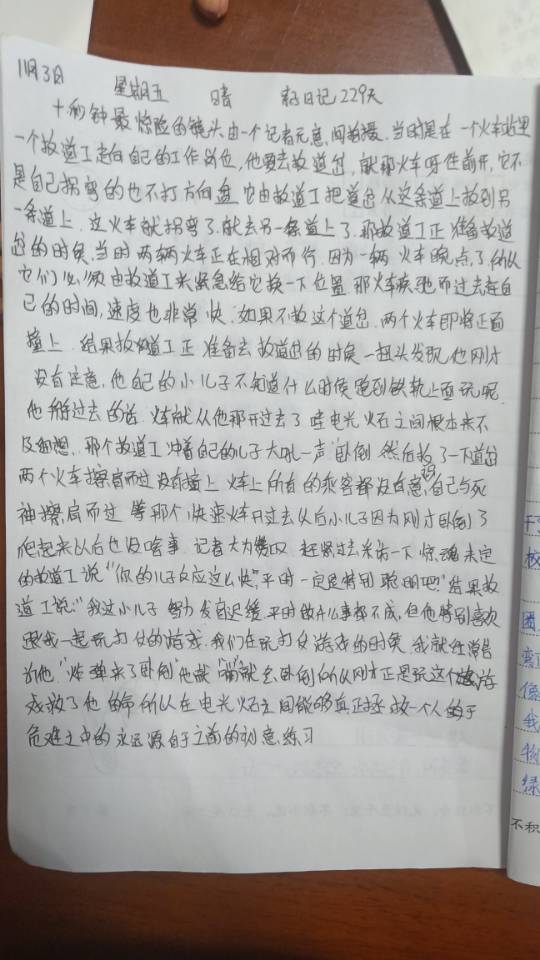 11月3日 星期五 晴 日记229天
十秒钟最惊险的镜头由一个记者无意间拍摄.当时是在一个火车站里
一个扳道工走向自己的工作岗位,他要去扳道岔,就那火车呀往前开,它不
是自己拐弯的也不打方向盘它由扳道工把道岔从这条道上扳到另
一条道上.这火车就拐弯了.就去另一条道上了.那扳道工正准备扳道
岔的时候.当时两辆火车正在相对而行.因为一辆火车晚点了所以
它们必须由扳道工来紧急给它换一下位置那火车疾驰而过去在自
己的时间,速度也非常快.如果不扳这个道岔.两个火车即将正面
撞上.结果扳道工正准备去扳道岔的时候一扭头发现他刚才
没有注意,他自己的小儿子不知道什么时候跑到铁轨上面玩呢
他过去的话.火车就从他那开过去了电光火石之间根本来不
及细想.那个扳道工冲着自己的儿子大吼一声卧倒然后扳了一下道岔
两个火车擦肩而过没有撞上火车上所有的乘客都没有意识自己与死
神擦肩而过等那个快速火车开过去以后小儿子因为刚才卧倒了
爬起来以后也没啥事.记者大为赶紧过来采访一下惊魂未定
的扳道工说"你的儿子反应这么快",平时一定是特别聪明吧."结果扳
道工说:"我这小儿子发育迟缓平时做什么事都不成,但他特别喜欢
跟我一起玩打仗的游戏.我们在玩打仗游戏的时候.我就经常告
诉他"炸弹来了卧倒"他就就会卧倒所以刚才正是玩这个游
戏救了他的命所以在电光火石之间能够真正拯救一个人于
危难之中的永远源自于之前的刻意练习